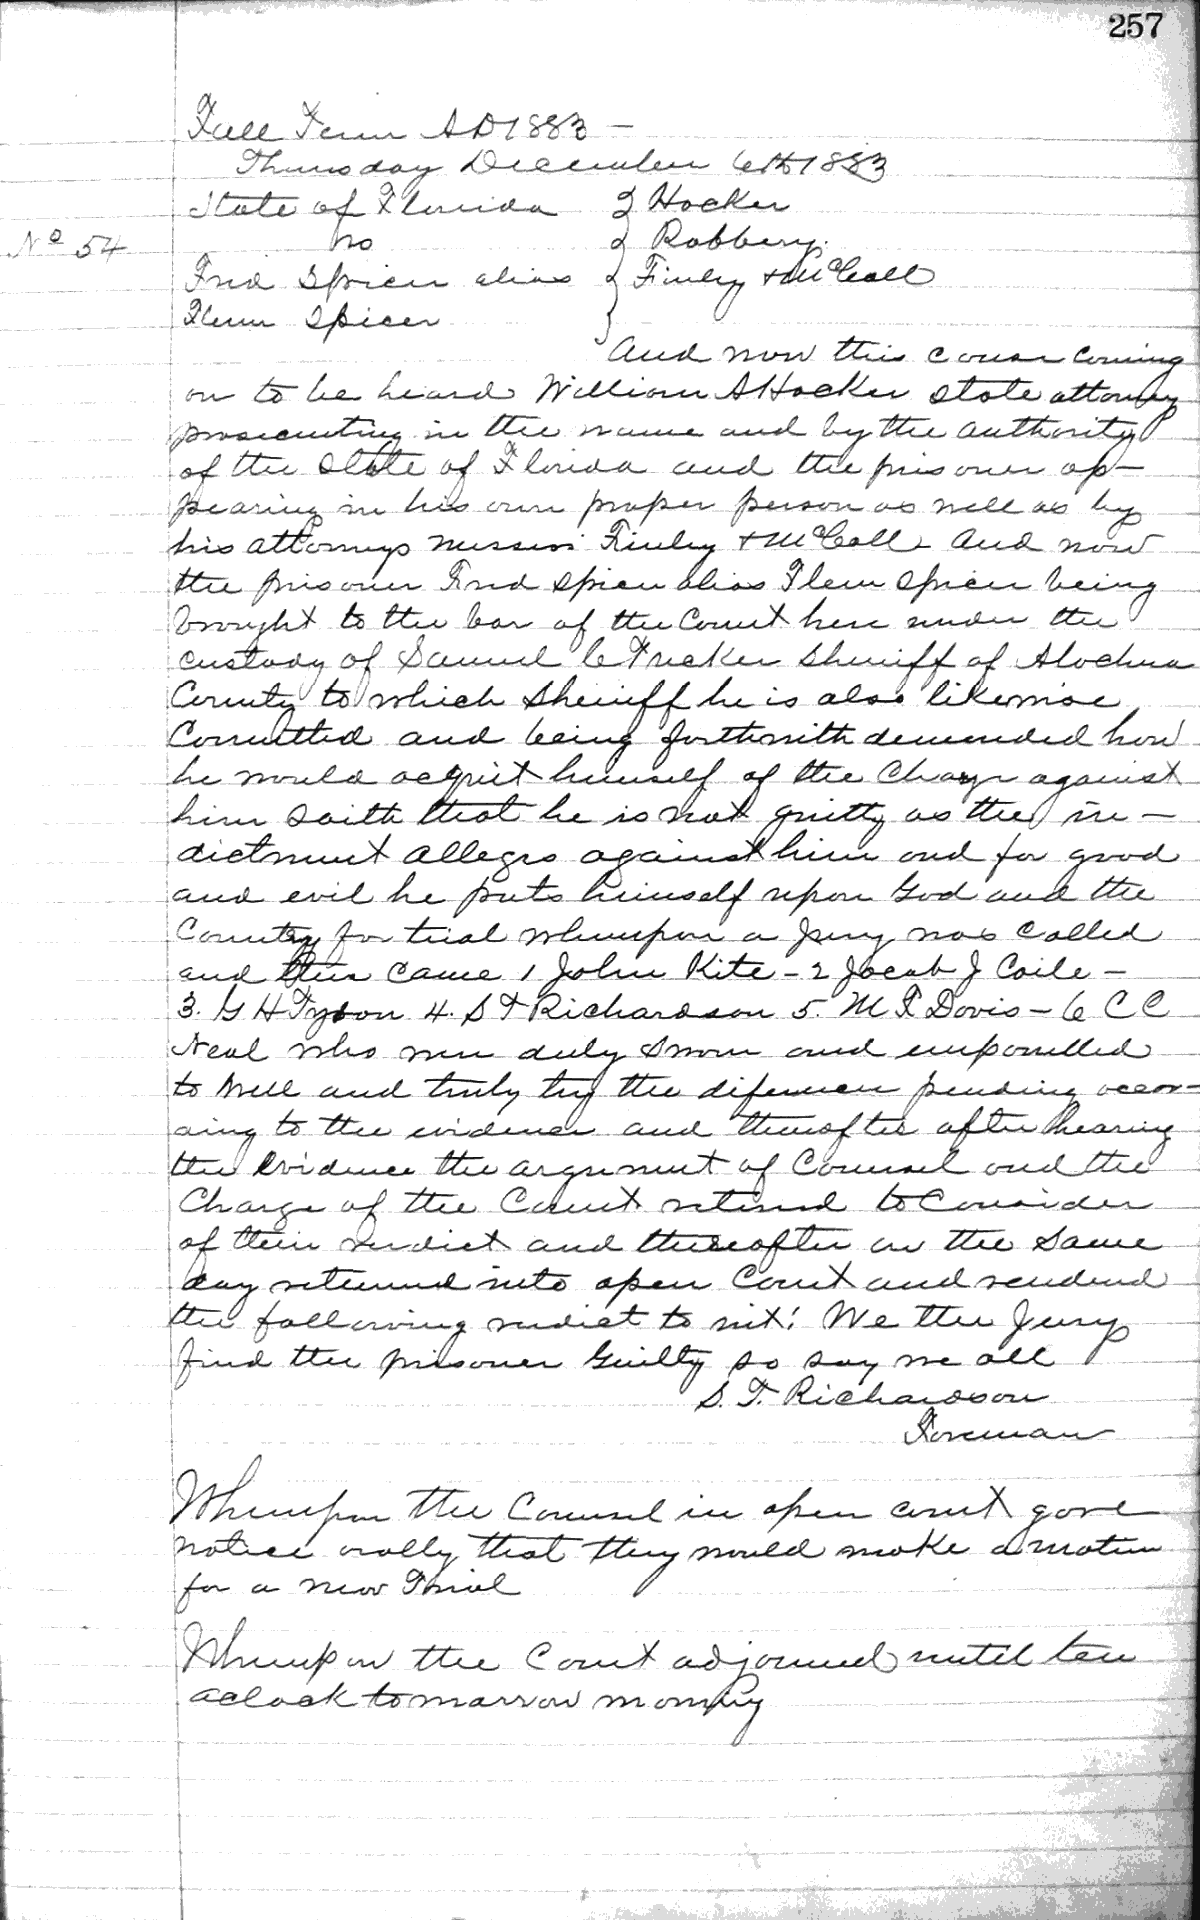 257
Fall Term AD 1883 —
Thursday December 6th 1883
State of Florida } Hocker
No 54 vs } Robbery.
Fred Spicer alias } Finley & McCall
Flem Spicer }
And now this cause coming
on to be heard William A Hocker State attorney
prosecuting in the name and by the authority
of the State of Florida and the prisoner ap-
pearing in his own proper person as well as by
his attorneys Messrs Finley & McCall And now
the prisoner Fred Spicer alias Flem Spicer being
brought to the bar of the Court here under the
custody of Samuel C Tucker Sheriff of Alachua
County to which Sheriff he is also likewise
Committed and being forthwith demended how
he would acquit himself of the Charge against
him Saith that he is not guilty as the in-
dictment alleges against him and for good
and evil he puts himself upon God and the
Country for trial whereupon a Jury was Called
and thus came 1 John Kite - 2 Jacob J Caile -
3. G H Tyson 4. S T Richardson 5. M F Davis - 6 C C
Neal who were duly Sworn and empanelled
to Well and truly try the diference pending accor-
ding to the evidence and thereafter after hearing
the Evidence the argument of Counsel and the
Charge of the Court retired to Consider
of their verdict and thereafter on the Same
day returned into open Court and rendered
the following verdict to wit: We the Jury
find the prisoner Guilty so say we all
S. T. Richardson
Foreman
Whereupon the Counsel in open court gave
notice orally that they would make a motion
for a new Trial
Whereupon the Court adjourned until ten
oclock tomorrow morning